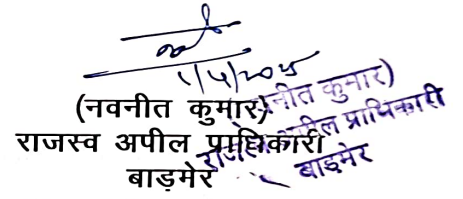 1/5/2025
(नवनीत कुमार)
राजस्व अपील प्राधिकारी
बाड़मेर
नीत कुमार)
अपील प्राधिकारी
बाड़मेर